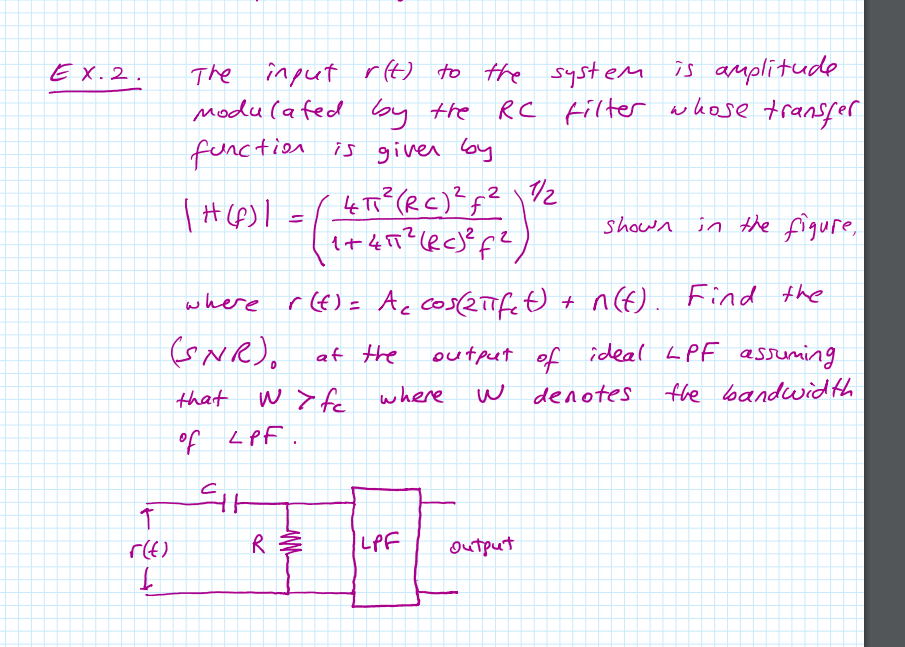 Ex. 2. The input r(t) to the system is amplitude
modulated by the RC filter whose transfer
function is given by
|H(f)| = (4π²(RC)²f² / 1+4π²(RC)²f²)^1/2 shown in the figure,
where r(t) = Ac cos(2πfct) + n(t). Find the
(SNR)o at the output of ideal LPF assuming
that W > fc where W denotes the bandwidth
of LPF.
C
r(t) R LPF output